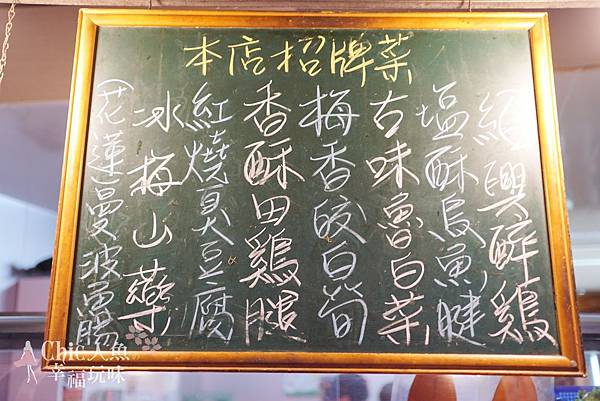 本店招牌菜
紹興醉鷄
塩酥烏魚腱
古味魯白菜
梅香皎白筍
香酥田鷄腿
紅燒臭豆腐
冰梅山藥
(花蓮曼波魚腸
Chic
幸福玩味